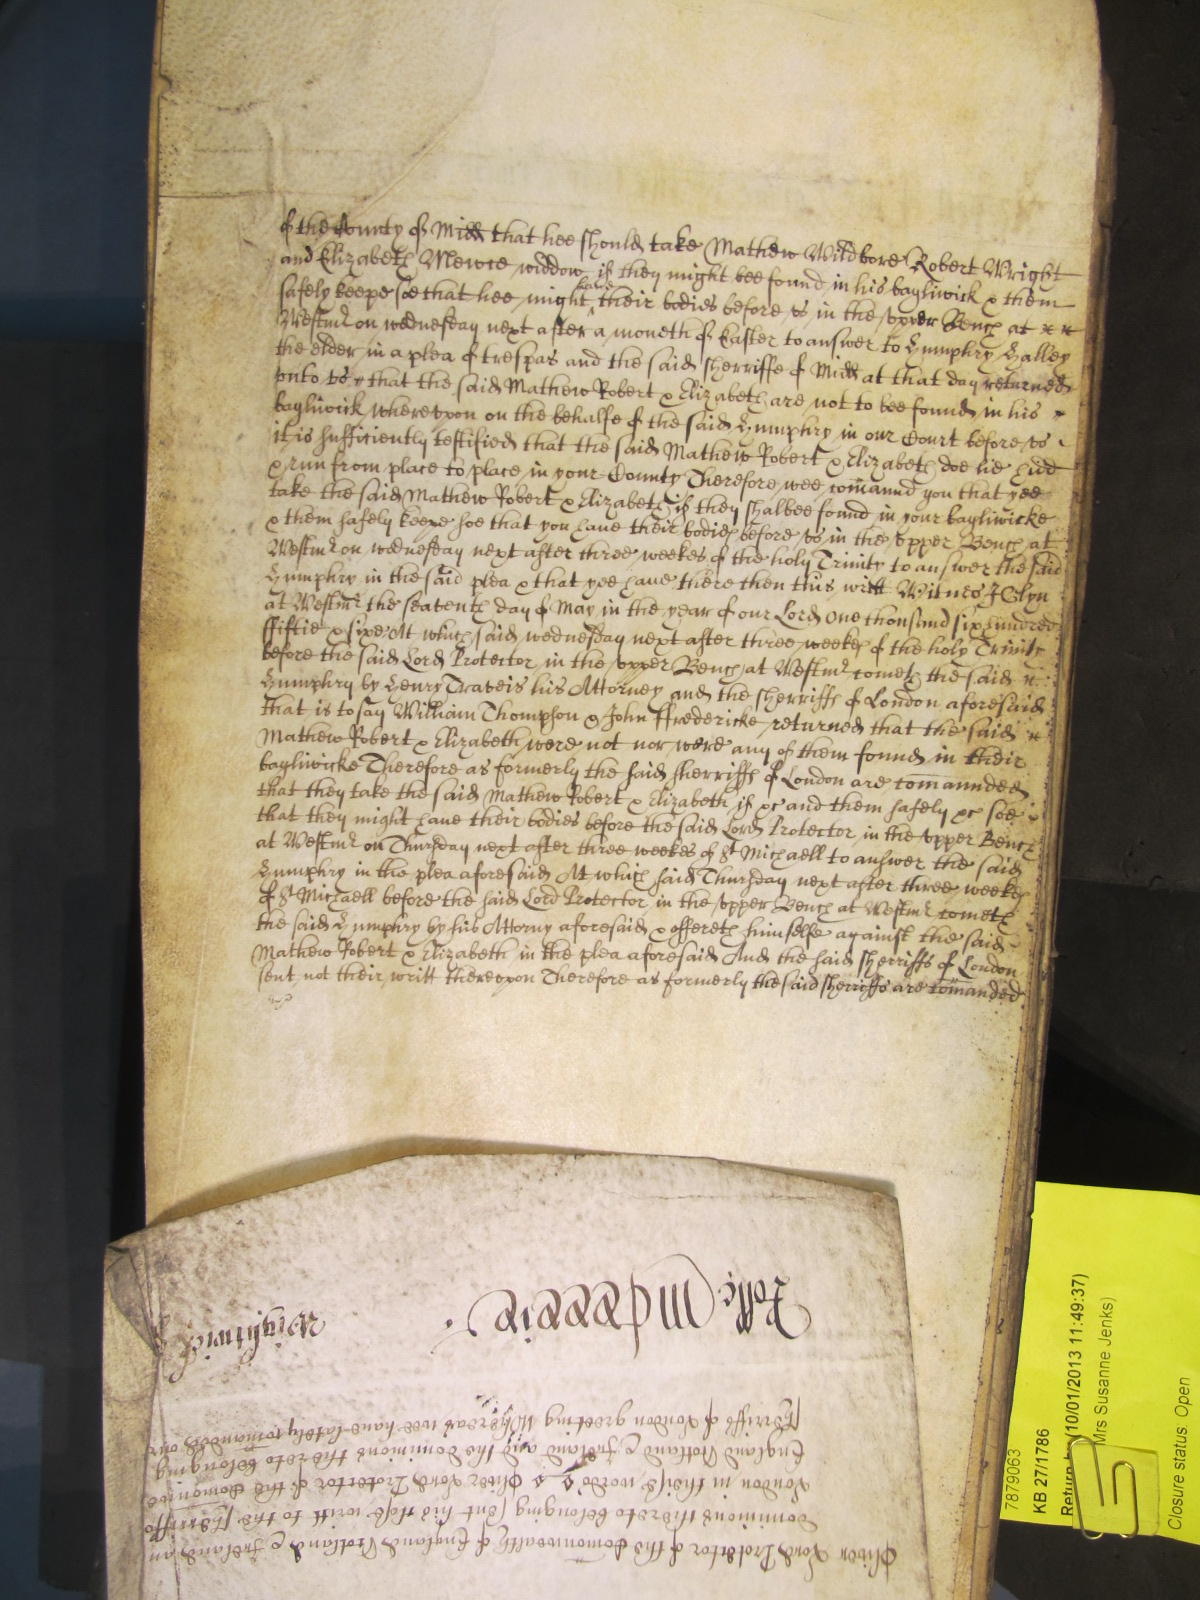 of the County of Midd that hee should take Mathew Wildbore Robert Wright
and Elizabeth Mewce widdow if they might bee found in his bayliwick & them
safely keepe soe that hee might have their bodies before vs in the vpper Bench at
Westmr on wednesday next after a moneth of Easter to answer to Humphry Halley
the elder in a plea of trespas and the said sherriffe of Midd at that day returned
vnto vs that the said Mathew Robert & Elizabeth are not to bee found in his
bayliwick wherevpon on the behalfe of the said Humphry in our Court before vs
it is sufficiently testified that the said Mathew Robert & Elizabeth doe lie hidd
& run from place to place in your County Therefore wee comannd you that yee
take the said Mathew Robert & Elizabeth if they shalbee found in your bayliwicke
& them safely keepe soe that you have their bodies before vs in the vpper Bench at
Westmr on wednesday next after three weekes of the holy Trinity to answer the said
Humphry in the said plea & that yee have there then this writt Witnes J Glyn
at Westmr the day of May in the year of our Lord one thousand six hundred
fiftie & sixe At which said wednesday next after three weekes of the holy Trinity
before the said Lord Protector in the vpper Bench at Westmr cometh the said
Humphry by Henry Traveis his Attorney and the sherriffs of London aforesaid
that is to say William Thompson & John ffredericke returned that the said
Mathew Robert & Elizabeth were not nor were any of them found in their
bayliwicke Therefore as formerly the said sherriffs of London are comannded
that they take the said Mathew Robert & Elizabeth if &c and them safely &c soe
that they might have their bodies before the said Lord Protector in the vpper Bench
at Westmr on Thursday next after three weekes of St Michaell to answer the said
Humphry in the plea aforesaid At which said Thursday next after three weekes
of St Michaell before the said Lord Protector in the vpper Bench at Westmr cometh
the said Humphry by his Attorny aforesaid & offereth himselfe against the said
Mathew Robert & Elizabeth in the plea aforesaid And the said sherriffs of London
sent not their writt therevpon Therefore as formerly the said sherriffs are comanded
Wightwick
Oliver Lord Protector of the Comonwealth of England Scotland & Ireland an
dominions thereto belonging sent his close writt to the sherriffs
London in theise words Oliver Lord Protector of the Comonwe
England Scotland & Ireland and the dominions thereto belonging
sherriffs of London greeting Whereas wee have lately comanded our
7879063
KB 27/1786
Return by (10/01/2013 11:49:37)
Mrs Susanne Jenks)
Closure status: Open